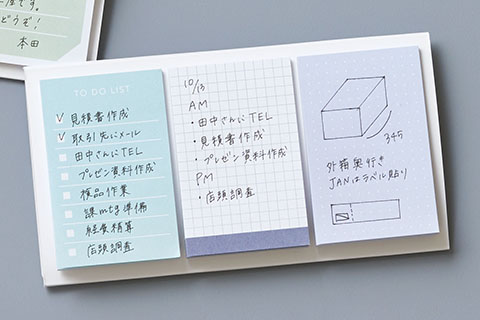 です。
どうぞ!
本田
TO DO LIST
見積書作成
取引先にメール
田中さんにTEL
プレゼン資料作成
検品作業
課mtg準備
経費精算
店頭調査
10/13
AM
・田中さんにTEL
・見積書作成
・プレゼン資料作成
PM
・店頭調査
345
外箱奥行き
JANはラベル貼り